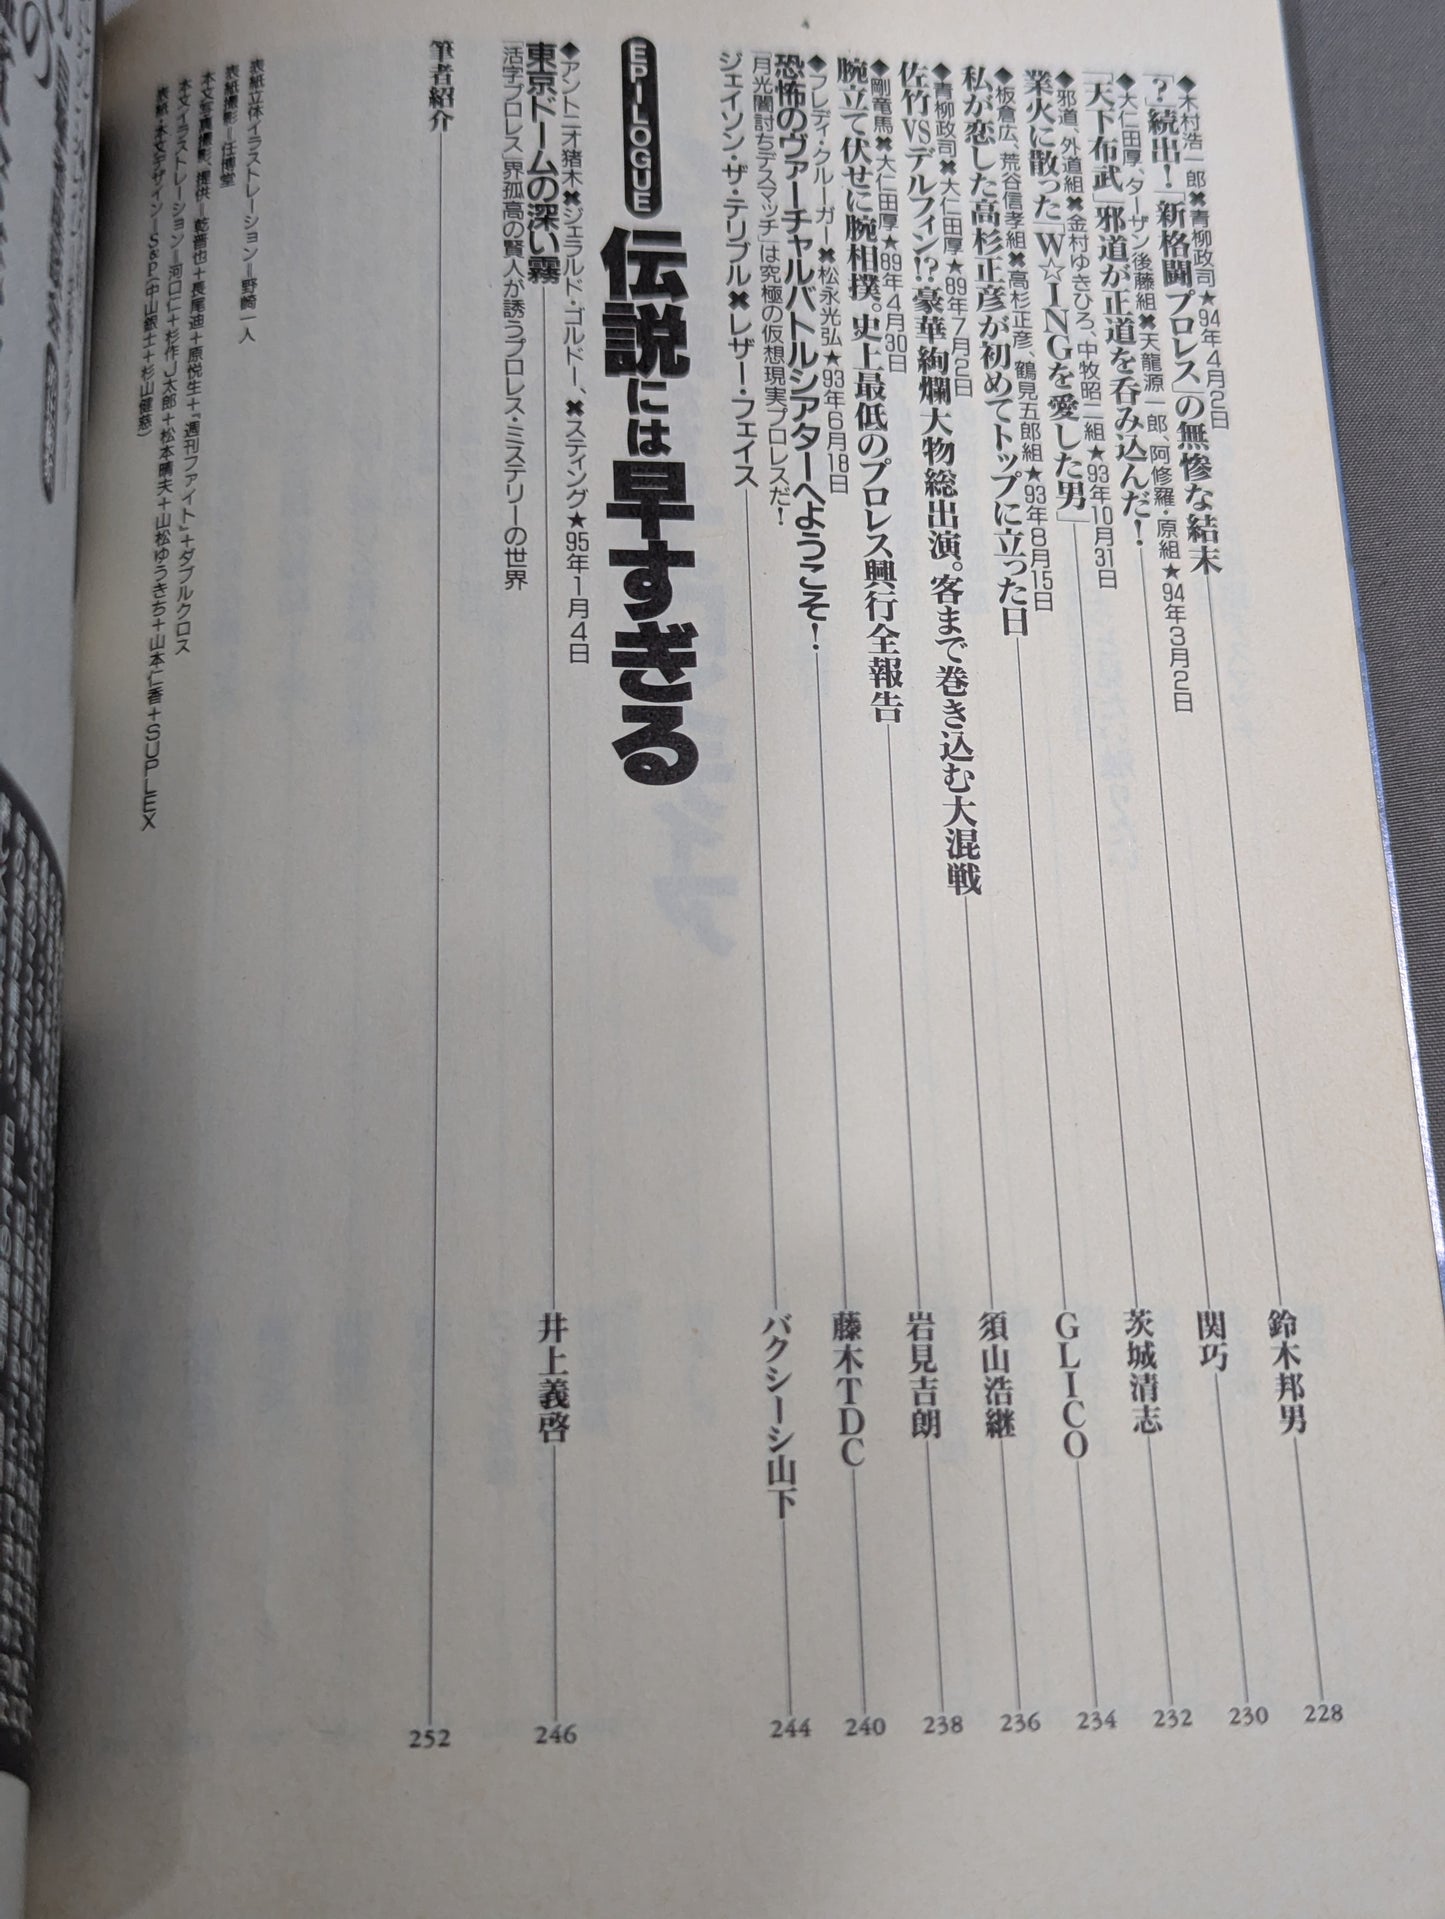 ◆木村浩一郎✖青柳政司★94年4月2日
「?」続出!「新格闘プロレス」の無惨な結末
鈴木邦男
228
◆大仁田厚、ターザン後藤組✖天龍源一郎、阿修羅・原組★94年3月2日
「天下布武」邪道が正道を呑み込んだ!
関巧
230
◆邪道、外道組✖金村ゆきひろ、中牧昭二組★93年10月31日
業火に散った「W☆INGを愛した男」
茨城清志
232
◆板倉広、荒谷信孝組✖高杉正彦、鶴見五郎組★93年8月15日
私が恋した高杉正彦が初めてトップに立った日
GLICO
234
◆青柳政司✖大仁田厚★89年7月2日
佐竹VSデルフィン!?豪華絢爛大物総出演。客まで巻き込む大混戦
須山浩継
236
◆剛竜馬✖大仁田厚★89年4月30日
腕立て伏せに腕相撲。史上最低のプロレス興行全報告
岩見吉朗
238
◆フレディ・クルーガー✖松永光弘★93年6月18日
恐怖のヴァーチャルバトルシアターへようこそ!
藤木TDC
240
「月光闇討ちデスマッチ」は究極の仮想現実プロレスだ!
ジェイソン・ザ・テリブル✖レザー・フェイス
バクシーシ山下
244
EPILOGUE 伝説には早すぎる
◆アントニオ猪木✖ジェラルド・ゴルドー、✖スティング★95年1月4日
東京ドームの深い霧
井上義啓
246
「活字プロレス」界孤高の賢人が誘うプロレス・ミステリーの世界
筆者紹介
252
表紙立体イラストレーション=野崎一人
表紙撮影=任博堂
本文写真撮影、提供=乾晋也+長尾迪+原悦生+『週刊ファイト』+ダブルクロス
本文イラストレーション=河口仁+杉作J太郎+松本晴夫+山松ゆうきち+山本仁香+SUPLEX
表紙・本文デザイン=S&P(中山銀士+杉山健慈)